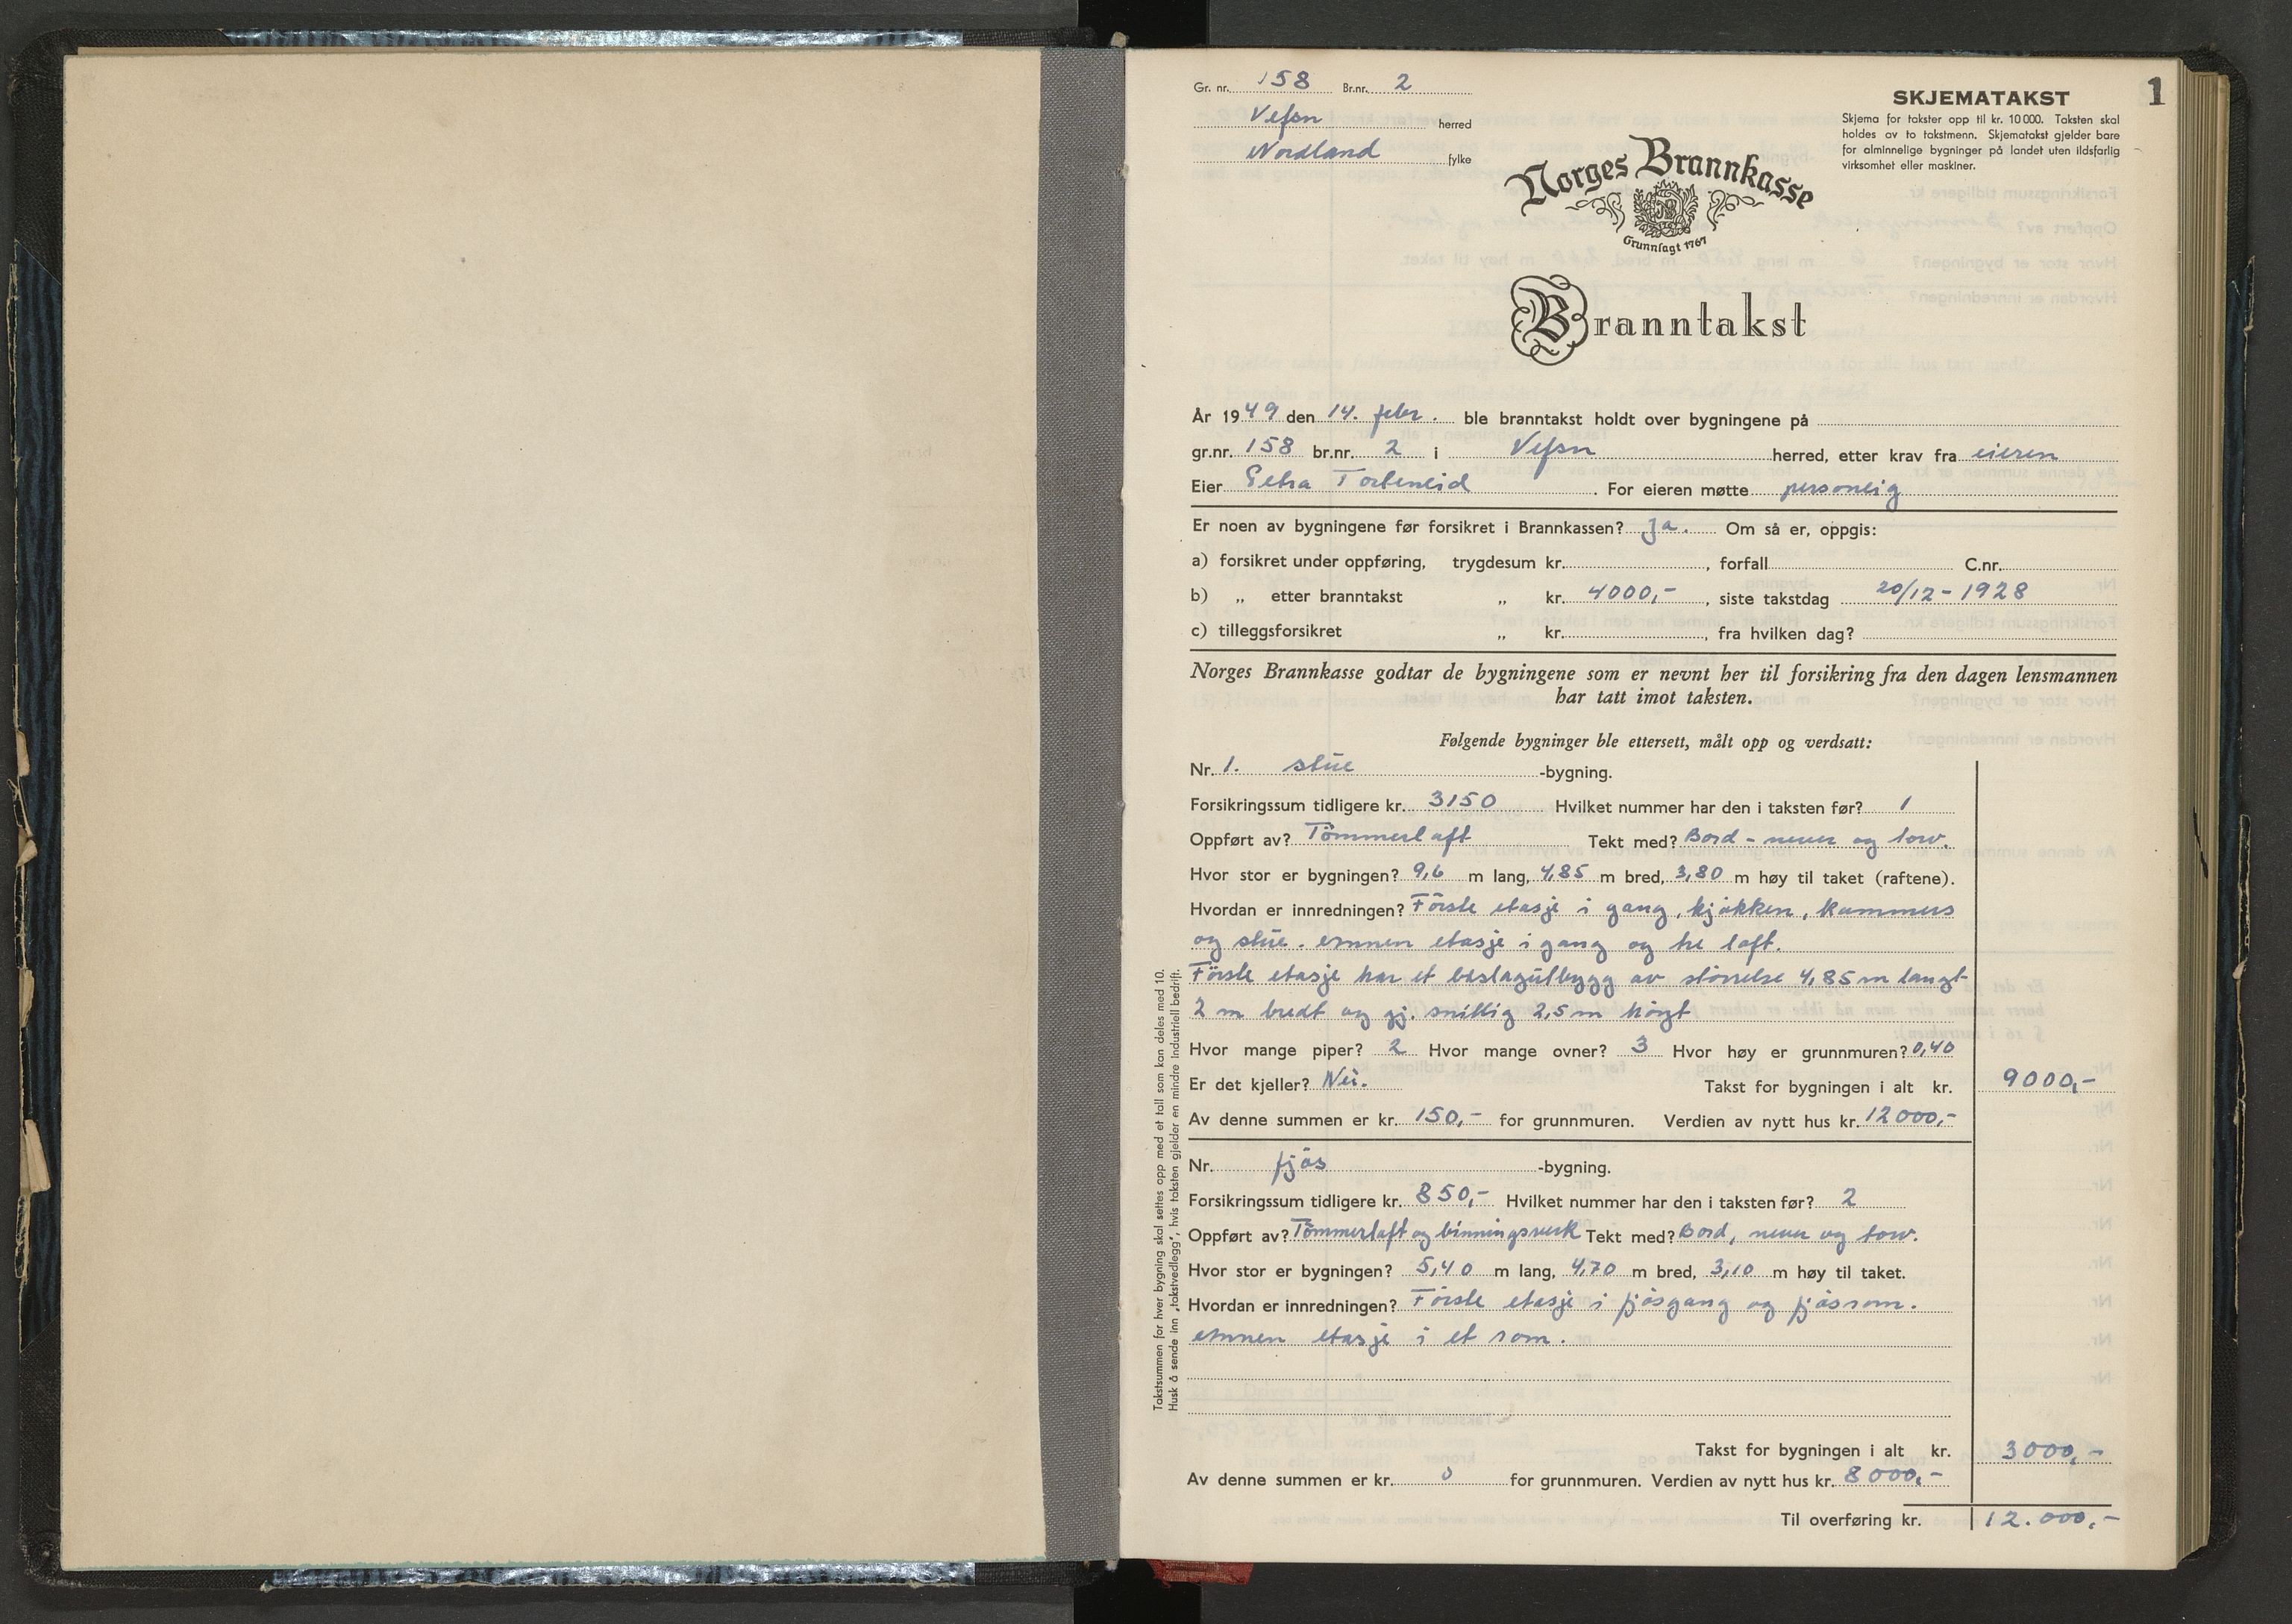 1
Gr. nr. 158 Br.nr. 2
Vefsn herred
Nordland fylke
SKJEMATAKST
Skjema for takster opp til kr. 10 000. Taksten skal
holdes av to takstmenn. Skjematakst gjelder bare
for alminnelige bygninger på landet uten ildsfarlig
virksomhet eller maskiner.
Norges Brannkasse
Grunnlagt 1767
Branntakst
År 1949 den 14. febr. ble branntakst holdt over bygningene på
gr.nr. 158 br.nr. 2 i Vefsn herred, etter krav fra eieren
Eier Petra Forbeneid. For eieren møtte personlig
Er noen av bygningene før forsikret i Brannkassen? Ja. Om så er, oppgis:
a) forsikret under oppføring, trygdesum kr. , forfall C.nr.
b) „ etter branntakst „ kr. 4000,- , siste takstdag 20/12 - 1928
c) tilleggsforsikret „ kr. , fra hvilken dag?
Norges Brannkasse godtar de bygningene som er nevnt her til forsikring fra den dagen lensmannen
har tatt imot taksten.
Følgende bygninger ble ettersett, målt opp og verdsatt:
Nr. 1. stue -bygning.
Forsikringssum tidligere kr. 3150 Hvilket nummer har den i taksten før? 1
Oppført av? Tömmerlaft Tekt med? Bord - never og torv.
Hvor stor er bygningen? 9,6 m lang, 4,85 m bred, 3,80 m høy til taket (raftene).
Hvordan er innredningen? Förste etasje i gang, kjökken, kammers
og stue. Annen etasje i gang og tre loft.
Förste etasje har et beslagutbygg av störrelse 4,85 m langt
2 m bredt og gj. snittlig 2,5 m höygt
Hvor mange piper? 2 Hvor mange ovner? 3 Hvor høy er grunnmuren? 0,40
Er det kjeller? Nei. Takst for bygningen i alt kr. 9000,-
Av denne summen er kr. 150,- for grunnmuren. Verdien av nytt hus kr. 12000,-
Nr. fjös -bygning.
Forsikringssum tidligere kr. 850,- Hvilket nummer har den i taksten før? 2
Oppført av? Tömmerlaft og binningsverk Tekt med? Bord, never og torv.
Hvor stor er bygningen? 5,40 m lang, 4,70 m bred, 3,10 m høy til taket.
Hvordan er innredningen? Förste etasje i fjösgang og fjösrom.
Annen etasje i et rom.
Takst for bygningen i alt kr. 3000,-
Av denne summen er kr. 0 for grunnmuren. Verdien av nytt hus kr. 8000,-
Til overføring kr. 12.000,-
Takstsummen for hver bygning skal settes opp med et tall som kan deles med 10.
Husk å sende inn „takstvedlegg", hvis taksten gjelder en mindre industriell bedrift.